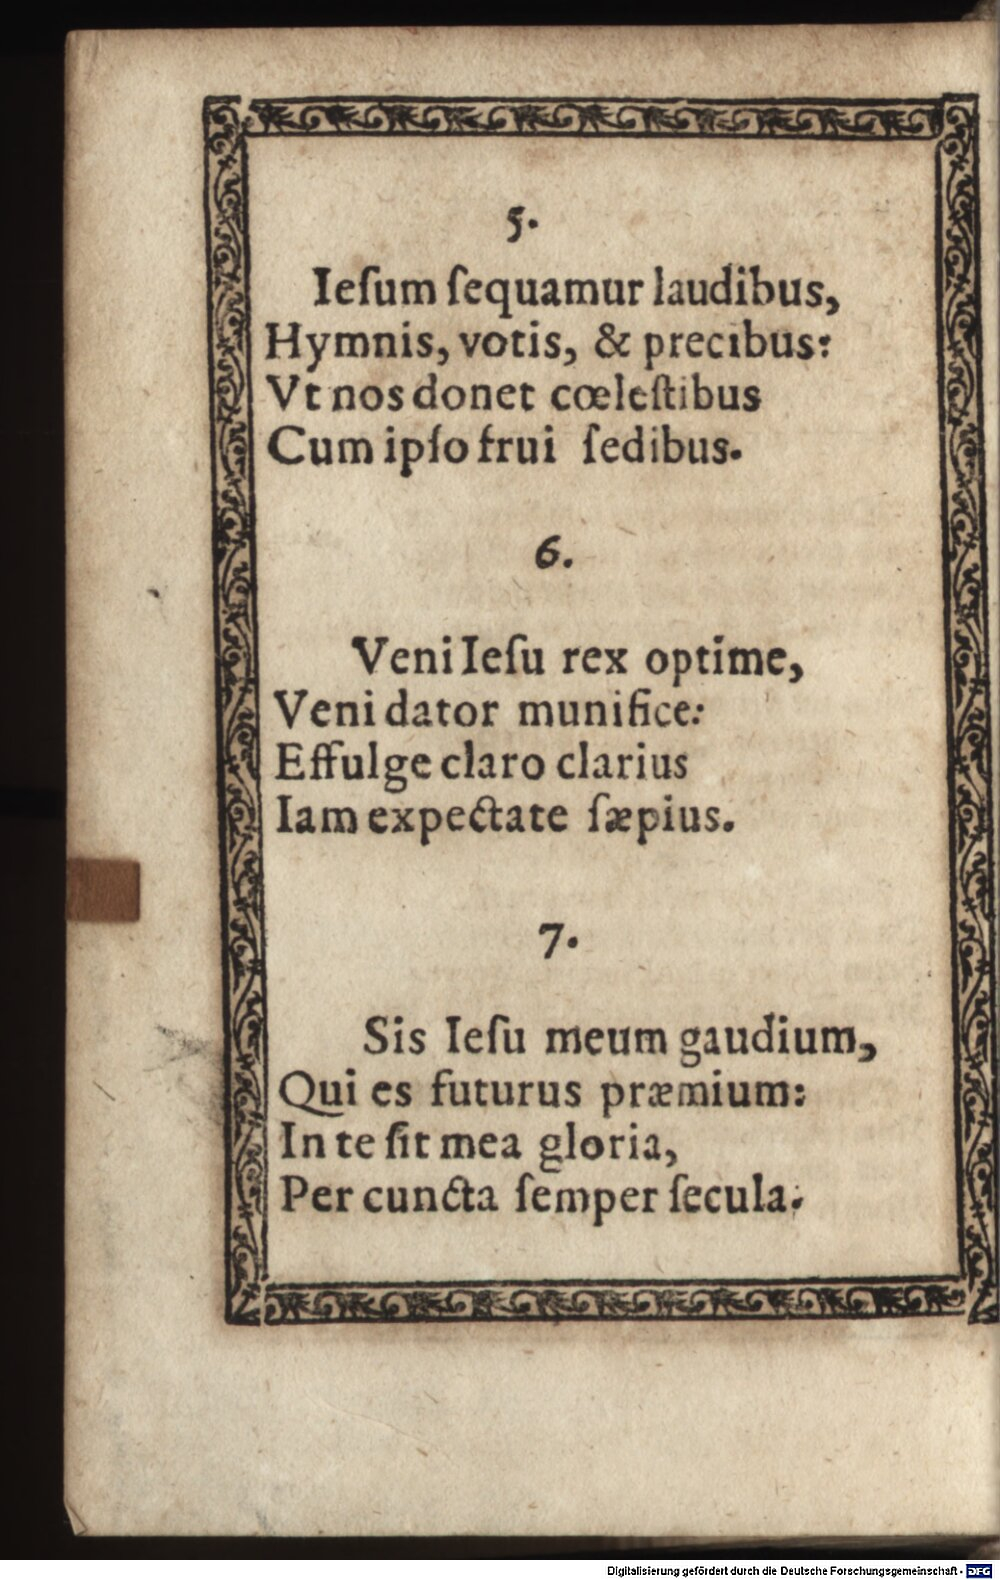 5.
Ieſum ſequamur laudibus,
Hymnis, votis, & precibus:
Vt nos donet cœleſtibus
Cum ipſo frui ſedibus.
6.
Veni Ieſu rex optime,
Veni dator munifice:
Effulge claro clarius
Iam expectate ſæpius.
7.
Sis Ieſu meum gaudium,
Qui es futurus præmium:
In te ſit mea gloria,
Per cuncta ſemper ſecula.
Digitalisierung gefördert durch die Deutsche Forschungsgemeinschaft - DFG